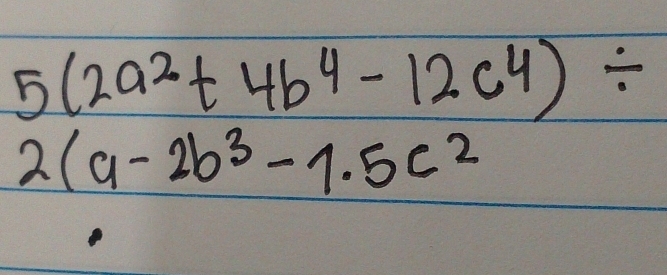 5(2a² + 4b⁴ - 12c⁴) ÷
2(a - 2b³ - 1.5c²